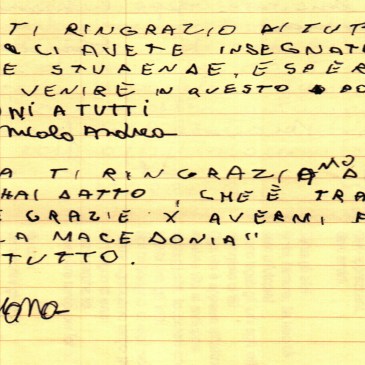 TI RINGRAZIO DI TUT
CI AVETE INSEGNAT
E STUAENDE, E SPER
VENIRE IN QUESTO PO
NI A TUTTI
Nicolo Andrea
A TI RINGRAZIAMO D
HAI DATTO, CHE È TRA
E GRAZIE X AVERMI F
LA MACEDONIA"
TUTTO.